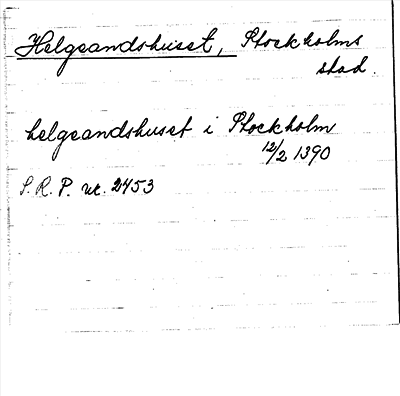 Helgeandshuset, Stockholms
stad.
helgeandshuset i Stockholm
12/2 1390
S.R.P. nr. 2453